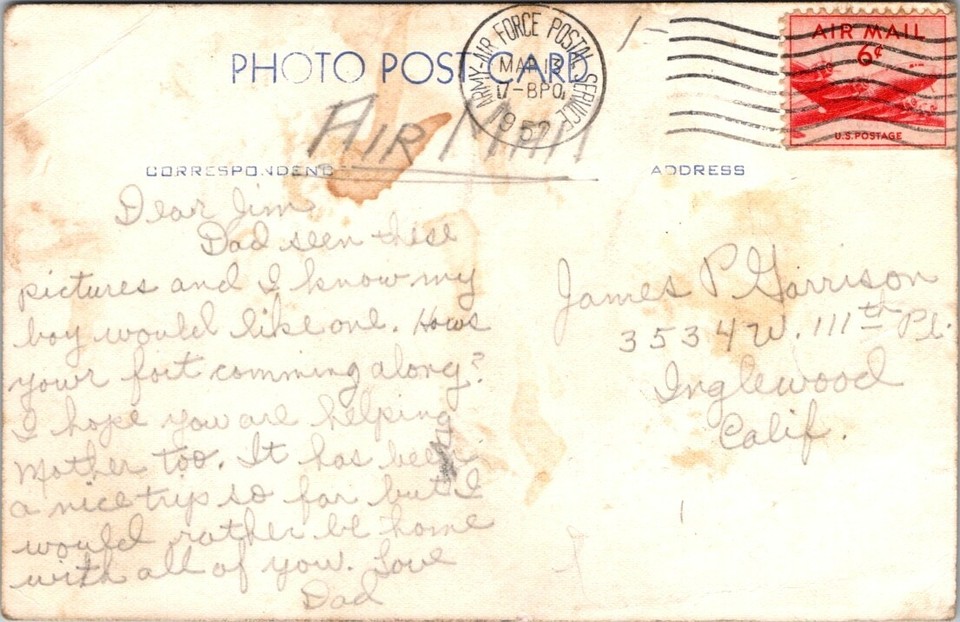 PHOTO POST CARD
AIR MAIL
ARMY-AIR FORCE POSTAL SERVICE
MAR 13
17-BPO
1952
AIR MAIL
6¢
U.S. POSTAGE
CORRESPONDENCE
ADDRESS
Dear Jim
Dad seen these
pictures and I know my
boy would like one. Hows
your fort comming along?
I hope you are helping
Mother too. It has been
a nice trip so far but I
would rather be home
with all of you. Love
Dad
James P Garrison
3534 W. 111th Pl.
Inglewood
Calif.